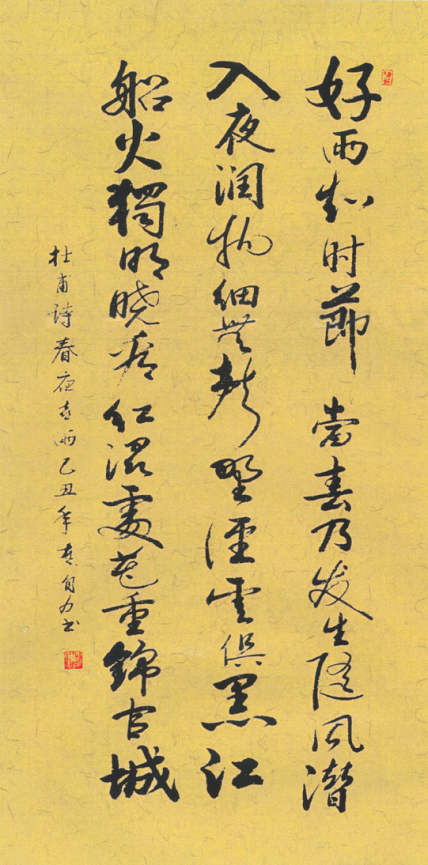 好雨知时節當春乃发生随风潛
入夜润物细無聲野径雲俱黑江
船火獨明晓看红濕處花重錦官城
杜甫詩春夜喜雨己丑年袁自力书